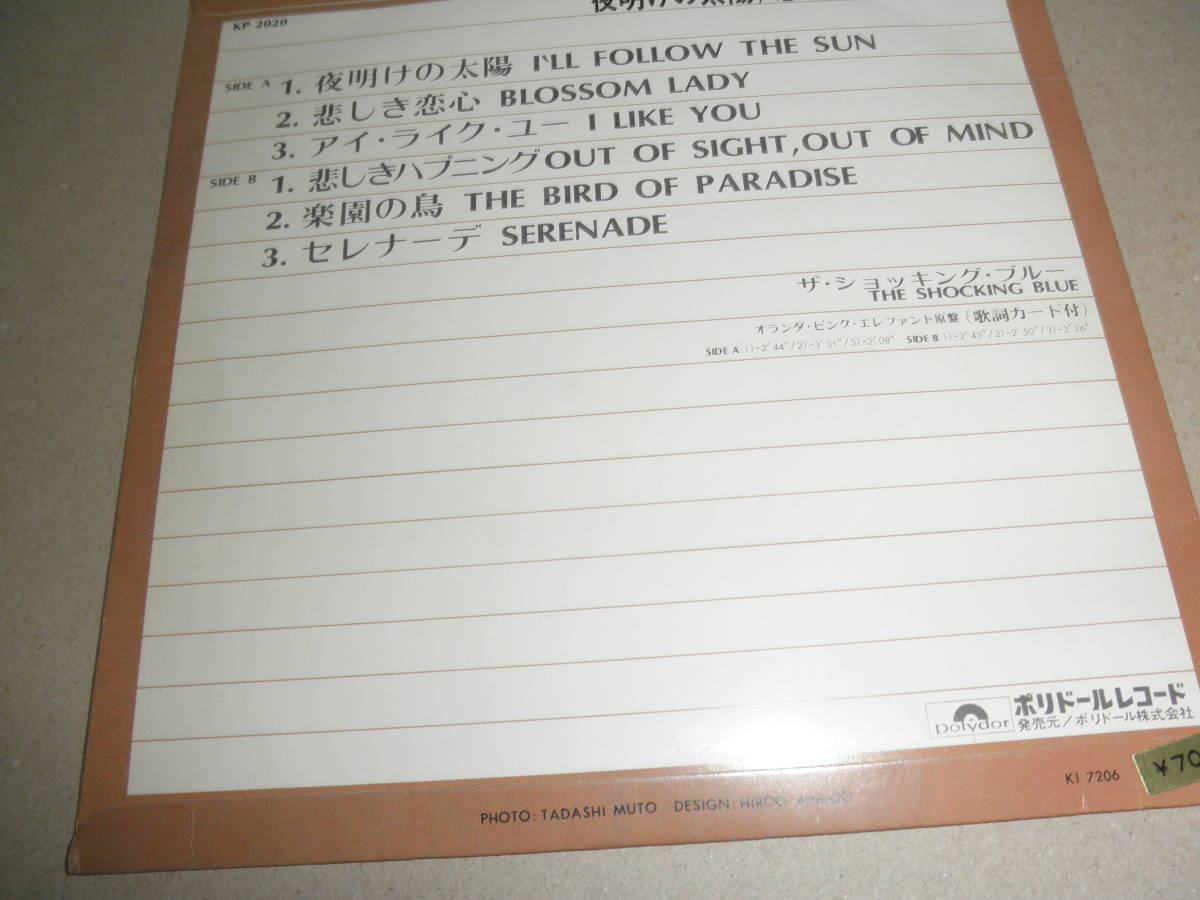 夜明けの太陽
KP 2020
SIDE A 1. 夜明けの太陽 I'LL FOLLOW THE SUN
2. 悲しき恋心 BLOSSOM LADY
3. アイ・ライク・ユー I LIKE YOU
SIDE B 1. 悲しきハプニング OUT OF SIGHT, OUT OF MIND
2. 楽園の鳥 THE BIRD OF PARADISE
3. セレナーデ SERENADE
ザ・ショッキング・ブルー
THE SHOCKING BLUE
オランダ・ピンク・エレファント原盤(歌詞カード付)
SIDE A 1)-2'44"/2)-3'31"/3)-2'08" SIDE B 1)-2'43"/2)-2'50"/3)-3'26"
polydor ポリドールレコード
発売元/ポリドール株式会社
KI 7206 ¥70
PHOTO: TADASHI MUTO DESIGN: HIROO